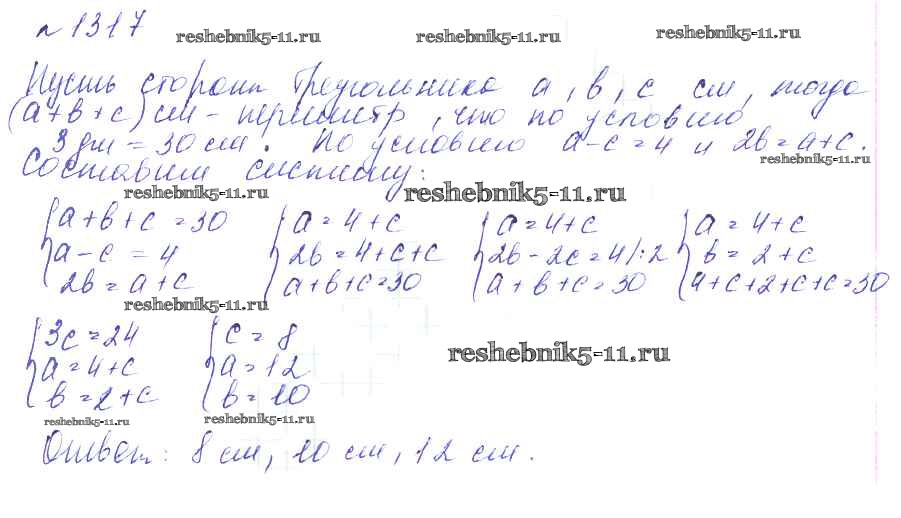 № 1317
reshebnik5-11.ru reshebnik5-11.ru reshebnik5-11.ru
Пусть стороны треугольника a, b, c см, тогда
(a+b+c) см - периметр, что по условию
3 дм = 30 см. По условию a-c=4 и 2b=a+c.
reshebnik5-11.ru
Составим систему:
reshebnik5-11.ru reshebnik5-11.ru
{a+b+c=30 {a=4+c {a=4+c {a=4+c
a-c=4 2b=4+c+c 2b-2c=4 |:2 b=2+c
2b=a+c a+b+c=30 a+b+c=30 a+c+2+c+c=30
reshebnik5-11.ru
{3c=24 {c=8
a=4+c a=12
b=2+c b=10
reshebnik5-11.ru
reshebnik5-11.ru reshebnik5-11.ru
Ответ: 8 см, 10 см, 12 см.